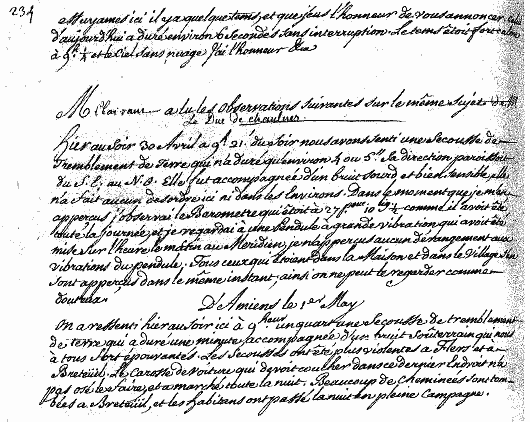 234
essuyames ici il y a quelque tems, et que j'eus l'honneur de vous annoncer. Celui
d'aujourd'hui a duré environ 6 secondes sans interruption. Le tems étoit fort calme
à 9h ¼ et le ciel sans nuage J'ai l'honneur &c
M. Clairaut a lu les observations suivantes sur le même sujet de M.
Le Duc de chaulnes
Hier au Soir 30 Avril a 9h 21. du Soir nous avons senti une Secousse de
Tremblement de Terre qui n'a duré qu'environ 4 ou 5". Sa direction paroissoit
du S. E. au N. O. Elle fut accompagnée d'un bruit sourd et bien sensible, elle
n'a fait aucun desordre ici ni dans les Environs. Dans le moment que je m'en
apperçus j'observai le Barometre qui étoit à 27 pouc 10 lig ½ comme il avoit été
toute la Journée, et je regardai à une Pendule a grande vibration qui avoit été
mise sur l'heure le matin au Meridien, je n'apperçus aucun dérangement aux
vibrations du pendule; Tous ceux qui étoient dans la Maison et dans le Village s'en
sont apperçus dans le même instant, ainsi on ne peut le regarder comme
douteux
D'Amiens le 1er May
On a ressenti hier au soir ici à 9 heur un quart une Secousse de tremblement
de terre qui a duré une minute, accompagnée d'un bruit Souterrain qui nous
a tous fort épouvantés. Les Secousses ont été plus violentes a Flers et a
Breteuil. Le Carosse de Voiture qui devoit coucher dans ce dernier Endroit n'a
pas osé le faire, et a marché toute la nuit. Beaucoup de Cheminées sont tom-
bées a Breteuil, et les habitans ont passé la nuit en pleine Campagne.